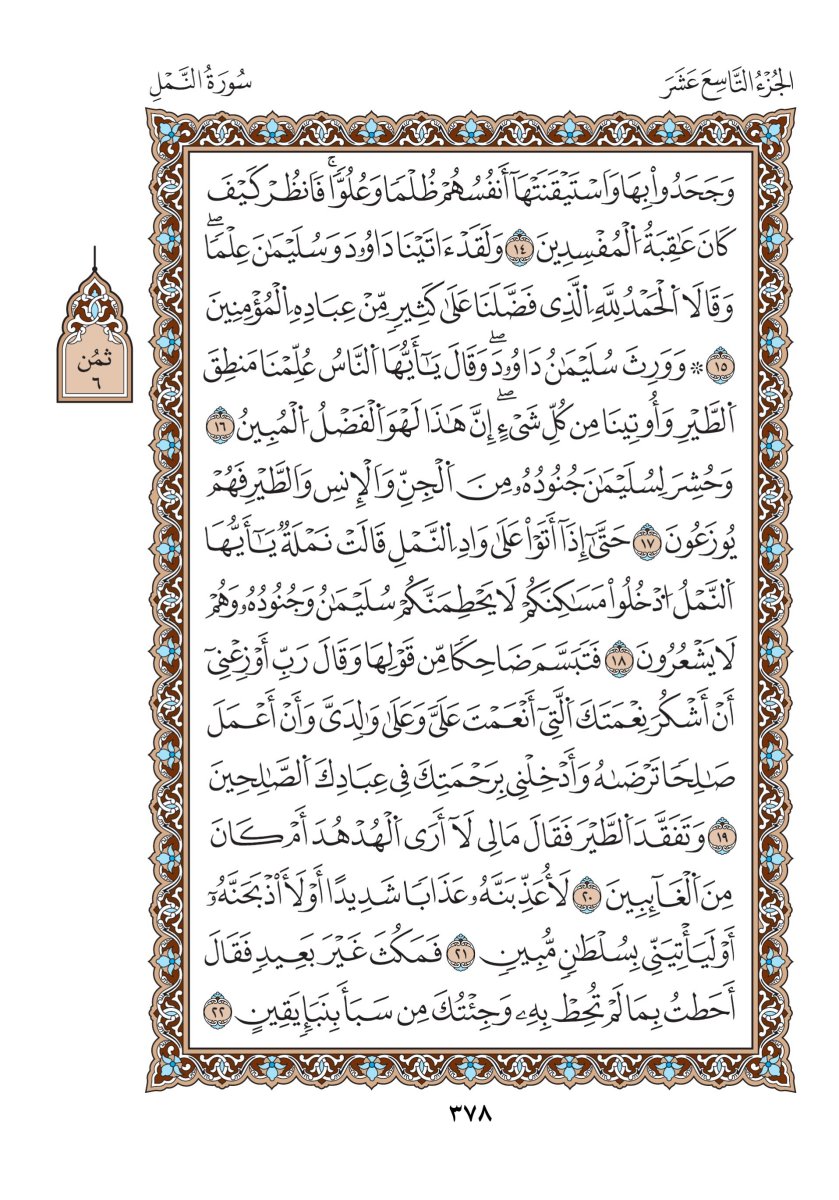 الجُزْءُ التَّاسِعَ عَشَرَ
سُورَةُ النَّمْلِ
وَجَحَدُواْ بِهَا وَاَسْتَيْقَنَتْهَآ أَنفُسُهُمْ ظُلْمٗا وَعُلُوّٗاۚ فَانظُرْ كَيْفَ
كَانَ عَٰقِبَةُ اُ۬لْمُفْسِدِينَ ١٤ وَلَقَدْ ءَاتَيْنَا دَاوُۥدَ وَسُلَيْمَٰنَ عِلْمٗاۖ
وَقَالَا اَ۬لْحَمْدُ لِلهِ اِ۬لَّذِى فَضَّلَنَا عَلَىٰ كَثِيرٖ مِّنْ عِبَادِهِ اِ۬لْمُؤْمِنِينَ
١٥ ۞ وَوَرِثَ سُلَيْمَٰنُ دَاوُۥدَۖ وَقَالَ يَٰٓأَيُّهَا اَ۬لنَّاسُ عُلِّمْنَا مَنطِقَ
اَ۬لطَّيْرِ وَأُوتِينَا مِن كُلِّ شَىْءٍۖ إِنَّ هَٰذَا لَهُوَ اَ۬لْفَضْلُ اُ۬لْمُبِينُ ١٦
وَحُشِرَ لِسُلَيْمَٰنَ جُنُودُهُۥ مِنَ اَ۬لْجِنِّ وَالْإِنسِ وَالطَّيْرِ فَهُمْ
يُوزَعُونَ ١٧ حَتَّىٰٓ إِذَآ أَتَوْاْ عَلَىٰ وَادِ اِ۬لنَّمْلِ قَالَتْ نَمْلَةٞ يَٰٓأَيُّهَا
اَ۬لنَّمْلُ اُ۟دْخُلُواْ مَسَٰكِنَكُمْ لَا يَحْطِمَنَّكُمْ سُلَيْمَٰنُ وَجُنُودُهُۥ وَهُمْ
لَا يَشْعُرُونَ ١٨ فَتَبَسَّمَ ضَاحِكٗا مِّن قَوْلِهَا وَقَالَ رَبِّ أَوْزِعْنِىٓ
أَنْ أَشْكُرَ نِعْمَتَكَ اَ۬لَّتِىٓ أَنْعَمْتَ عَلَىَّ وَعَلَىٰ وَٰلِدَىَّ وَأَنْ أَعْمَلَ
صَٰلِحٗا تَرْضَىٰهُ وَأَدْخِلْنِى بِرَحْمَتِكَ فِى عِبَادِكَ اَ۬لصَّٰلِحِينَ
١٩ وَتَفَقَّدَ اَ۬لطَّيْرَ فَقَالَ مَالِى لَآ أَرَى اَ۬لْهُدْهُدَ أَمْ كَانَ
مِنَ اَ۬لْغَآئِبِينَ ٢٠ لَأُعَذِّبَنَّهُۥ عَذَابٗا شَدِيدًا أَوْ لَأَاْذْبَحَنَّهُۥٓ
أَوْ لَيَأْتِيَنِّى بِسُلْطَٰنٖ مُّبِينٖ ٢١ فَمَكُثَ غَيْرَ بَعِيدٖ فَقَالَ
أَحَطتُ بِمَا لَمْ تُحِطْ بِهِۦ وَجِئْتُكَ مِن سَبَإٖ بِنَبَإٖ يَقِينٍ ٢٢
ثمُن
٦
٣٧٨